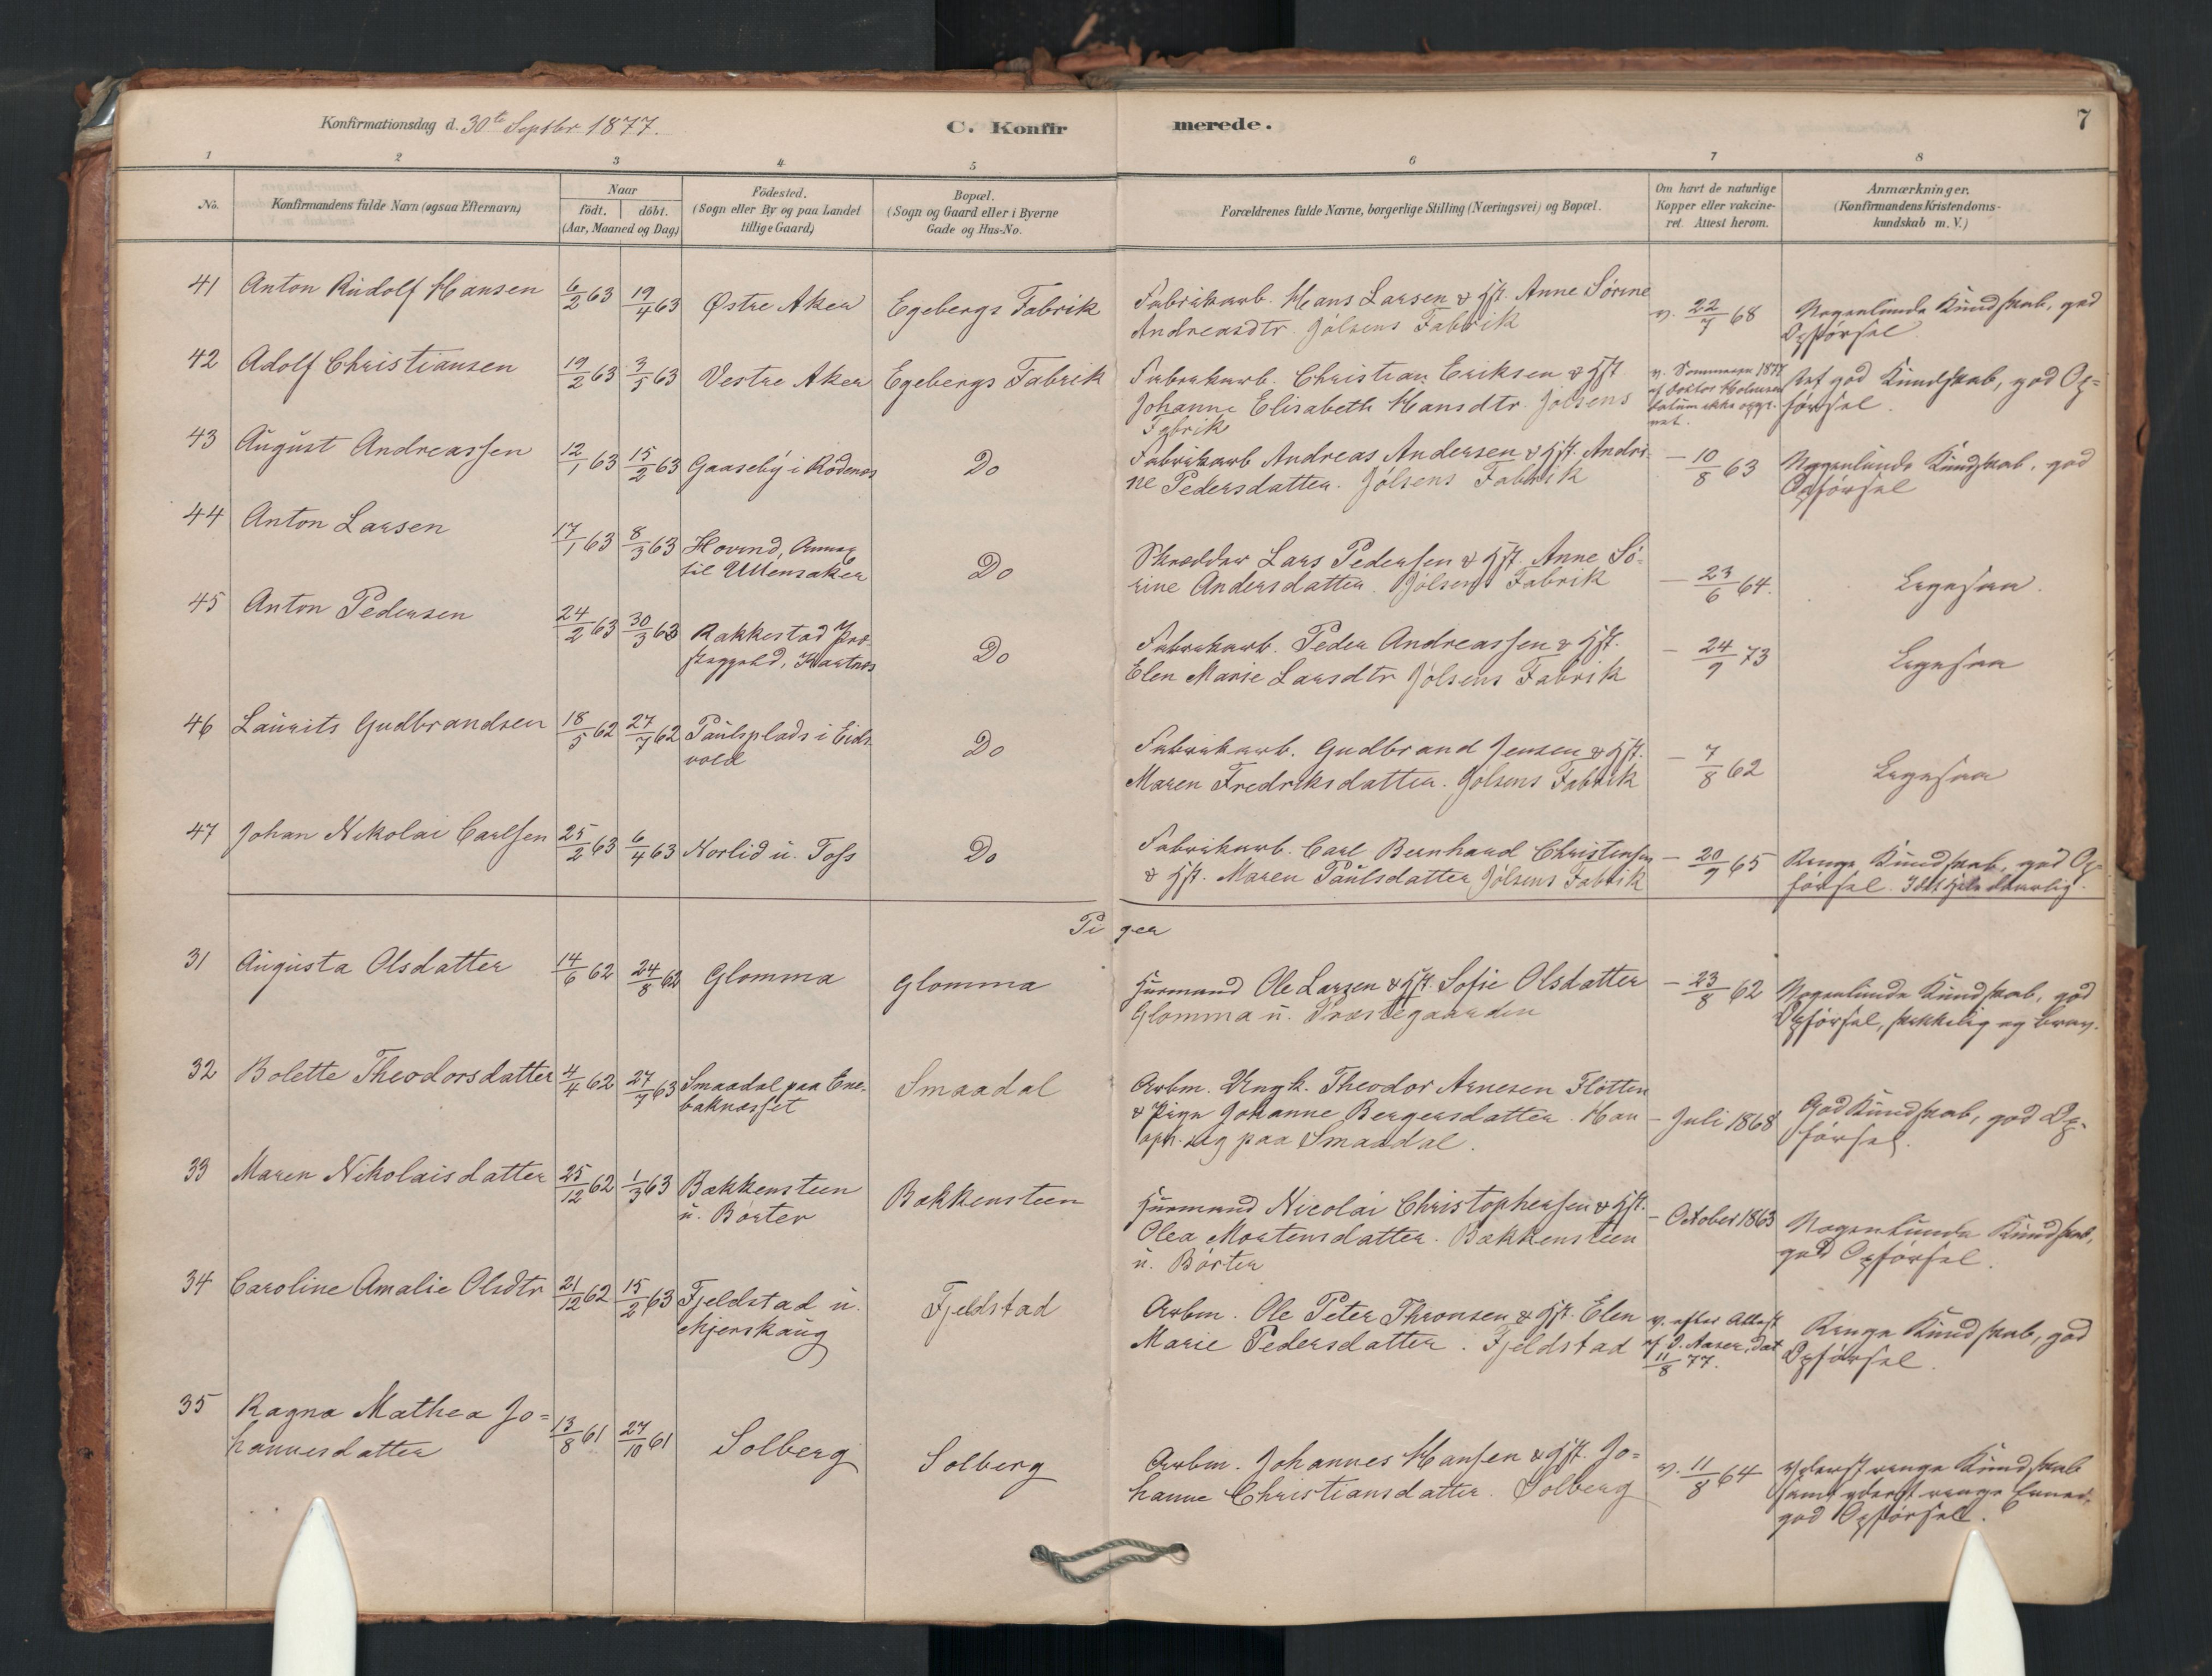 Konfirmationsdag d. 30te Septbr 1877. C. Konfirmerede. 7
1 2 3 4 5 6 7 8
No.
Konfirmandens fulde Navn (ogsaa Efternavn)
Naar
födt. döbt.
(Aar, Maaned og Dag)
Födested.
(Sogn eller By og paa Landet
tillige Gaard)
Bopæl.
(Sogn og Gaard eller i Byerne
Gade og Hus-No.
Forældrenes fulde Navne, borgerlige Stilling (Næringsvei) og Bopæl.
Om havt de naturlige
Kopper eller vakcine-
ret. Attest herom.
Anmærkninger.
(Konfirmandens Kristendoms-
kundskab m. V.)
41 Anton Rudolf Hansen 6/2 63 19/4 63 Østre Aker Egebergs Fabrik
Fabrikarb. Hans Larsen & Hst. Anne Sørine
Andreasdtr. Jølsens Fabrik
v. 22/7 68
Nogenlunde Kundskab, god
Opførsel
42 Adolf Christiansen 19/2 63 3/5 63 Vestre Aker Egebergs Fabrik
Fabrikarb. Christian Eriksen & Hst
Johanne Elisabeth Hansdtr. Jølsens
Fabrik
v. Sommeren 1877
af Doktor Holmsen
Datum ikke opgi-
vet.
god Kundskab, god Op=
førsel.
43 August Andreassen 12/1 63 15/2 63 Gaaseby i Rødenes Do
Fabrikarb Andreas Andersen & Hst. Andri-
ne Pedersdatter. Jølsens Fabrik
— 10/8 63
Nogenlunde Kundskab, god
Opførsel
44 Anton Larsen 17/1 63 8/3 63
Hovind, Annex
til Ullensaker
Do
Skrædder Lars Pedersen & Hst. Anne Sø-
rine Andersdatter. Jølsens Fabrik
— 23/6 64.
Ligesaa.
45 Anton Pedersen 24/2 63 30/3 63
Rakkestad Præ-
stegjeld,
Do
Fabrikarb. Peder Andreassen & Hst.
Elen Marie Larsdtr Jølsens Fabrik
— 24/9 73
Ligesaa
46 Laurits Gudbrandsen 18/5 62 27/7 62
Paulsplads i Eids-
vold
Do
Fabrikarb. Gudbrand Jensen & Hst.
Maren Fredriksdatter. Jølsens Fabrik
— 7/8 62
Ligesaa
47 Johan Nikolai Carlsen 25/2 63 6/4 63 Norlid u. Toss Do
Fabrikarb. Carl Bernhard Christensen
& Hst. Maren Paulsdatter Jølsens Fabrik
— 20/9 65
Ringe Kundskab, god Op-
førsel.
Piger
31 Augusta Olsdatter 14/6 62 24/8 62 Glomma Glomma
Husmand Ole Larsen & Hst. Sofie Olsdatter
Glomma u. Præstegaarden
— 23/8 62
Nogenlunde Kundskab, god
Opførsel, skikkelig og brav.
32 Bolette Theodorsdatter 4/4 62 27/7 63
Smaadal paa Ene-
baknæsset
Smaadal
Arbm. Ungk. Theodor Arnesen Fløtten
& Pige Johanne Bergersdatter. Han
oph. sig paa Smaadal.
— Juli 1868
God Kundskab, god Op-
førsel.
33 Maren Nikolaisdatter 25/12 62 1/3 63
Bækkensteen
u. Børter
Bækkensteen
Husmand Nicolai Christophersen & Hst.
Olea Mortensdatter. Bækkensteen
u. Børter
— October 1863
Nogenlunde Kundskab,
god Opførsel.
34 Caroline Amalie Olsdtr 21/12 62 15/2 63
Fjeldstad u.
Mjerskaug
Fjeldstad
Arbm. Ole Peter Thronsen & Hst. Elen
Marie Pedersdatter. Fjeldstad
v. efter Attest
af O. Aaser, dat
11/8 77.
Ringe Kundskab, god
Opførsel.
35 Ragna Mathea Jo=
hannesdatter
13/8 61 27/10 61 Solberg Solberg
Arbm. Johannes Hansen & Hst. Jo=
hanne Christiansdatter. Solberg
v. 11/8 64
Yderst ringe Kundskab
samt yderst ringe Evner,
god Opførsel.